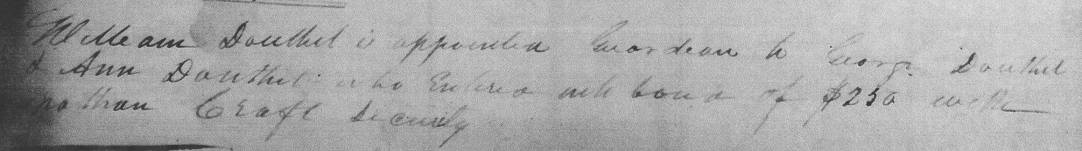 William Douthit is appointed Guardean to George Douthit
& Ann Douthit who Entered into bond of $250 with
nathan Craft Security